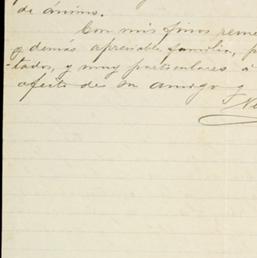 de ánimo.
Con mis finos
y demás apreciable familia, p
-tados, y muy particulares á
afecto de su amigo y